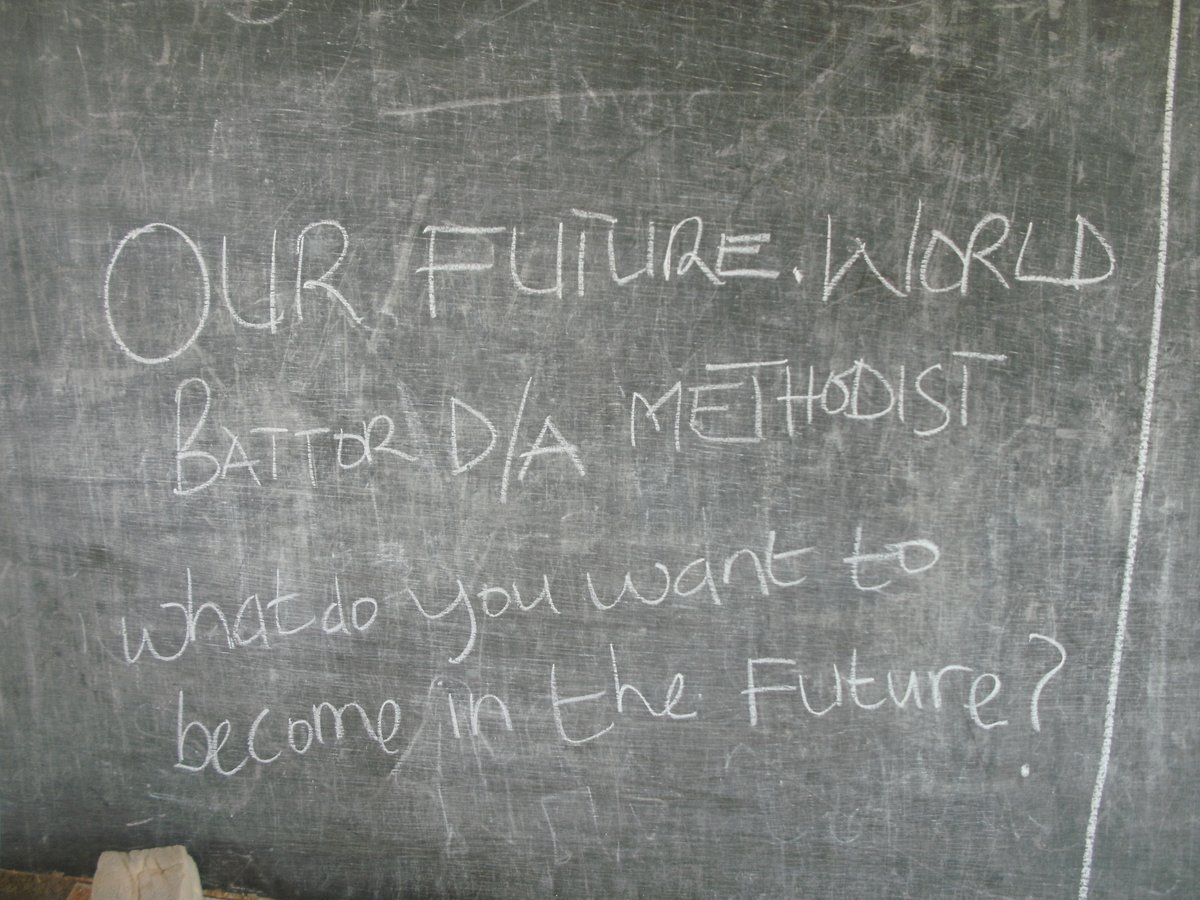 OUR FUTURE. WORLD
BATTOR D/A METHODIST
what do you want to
become in the Future?